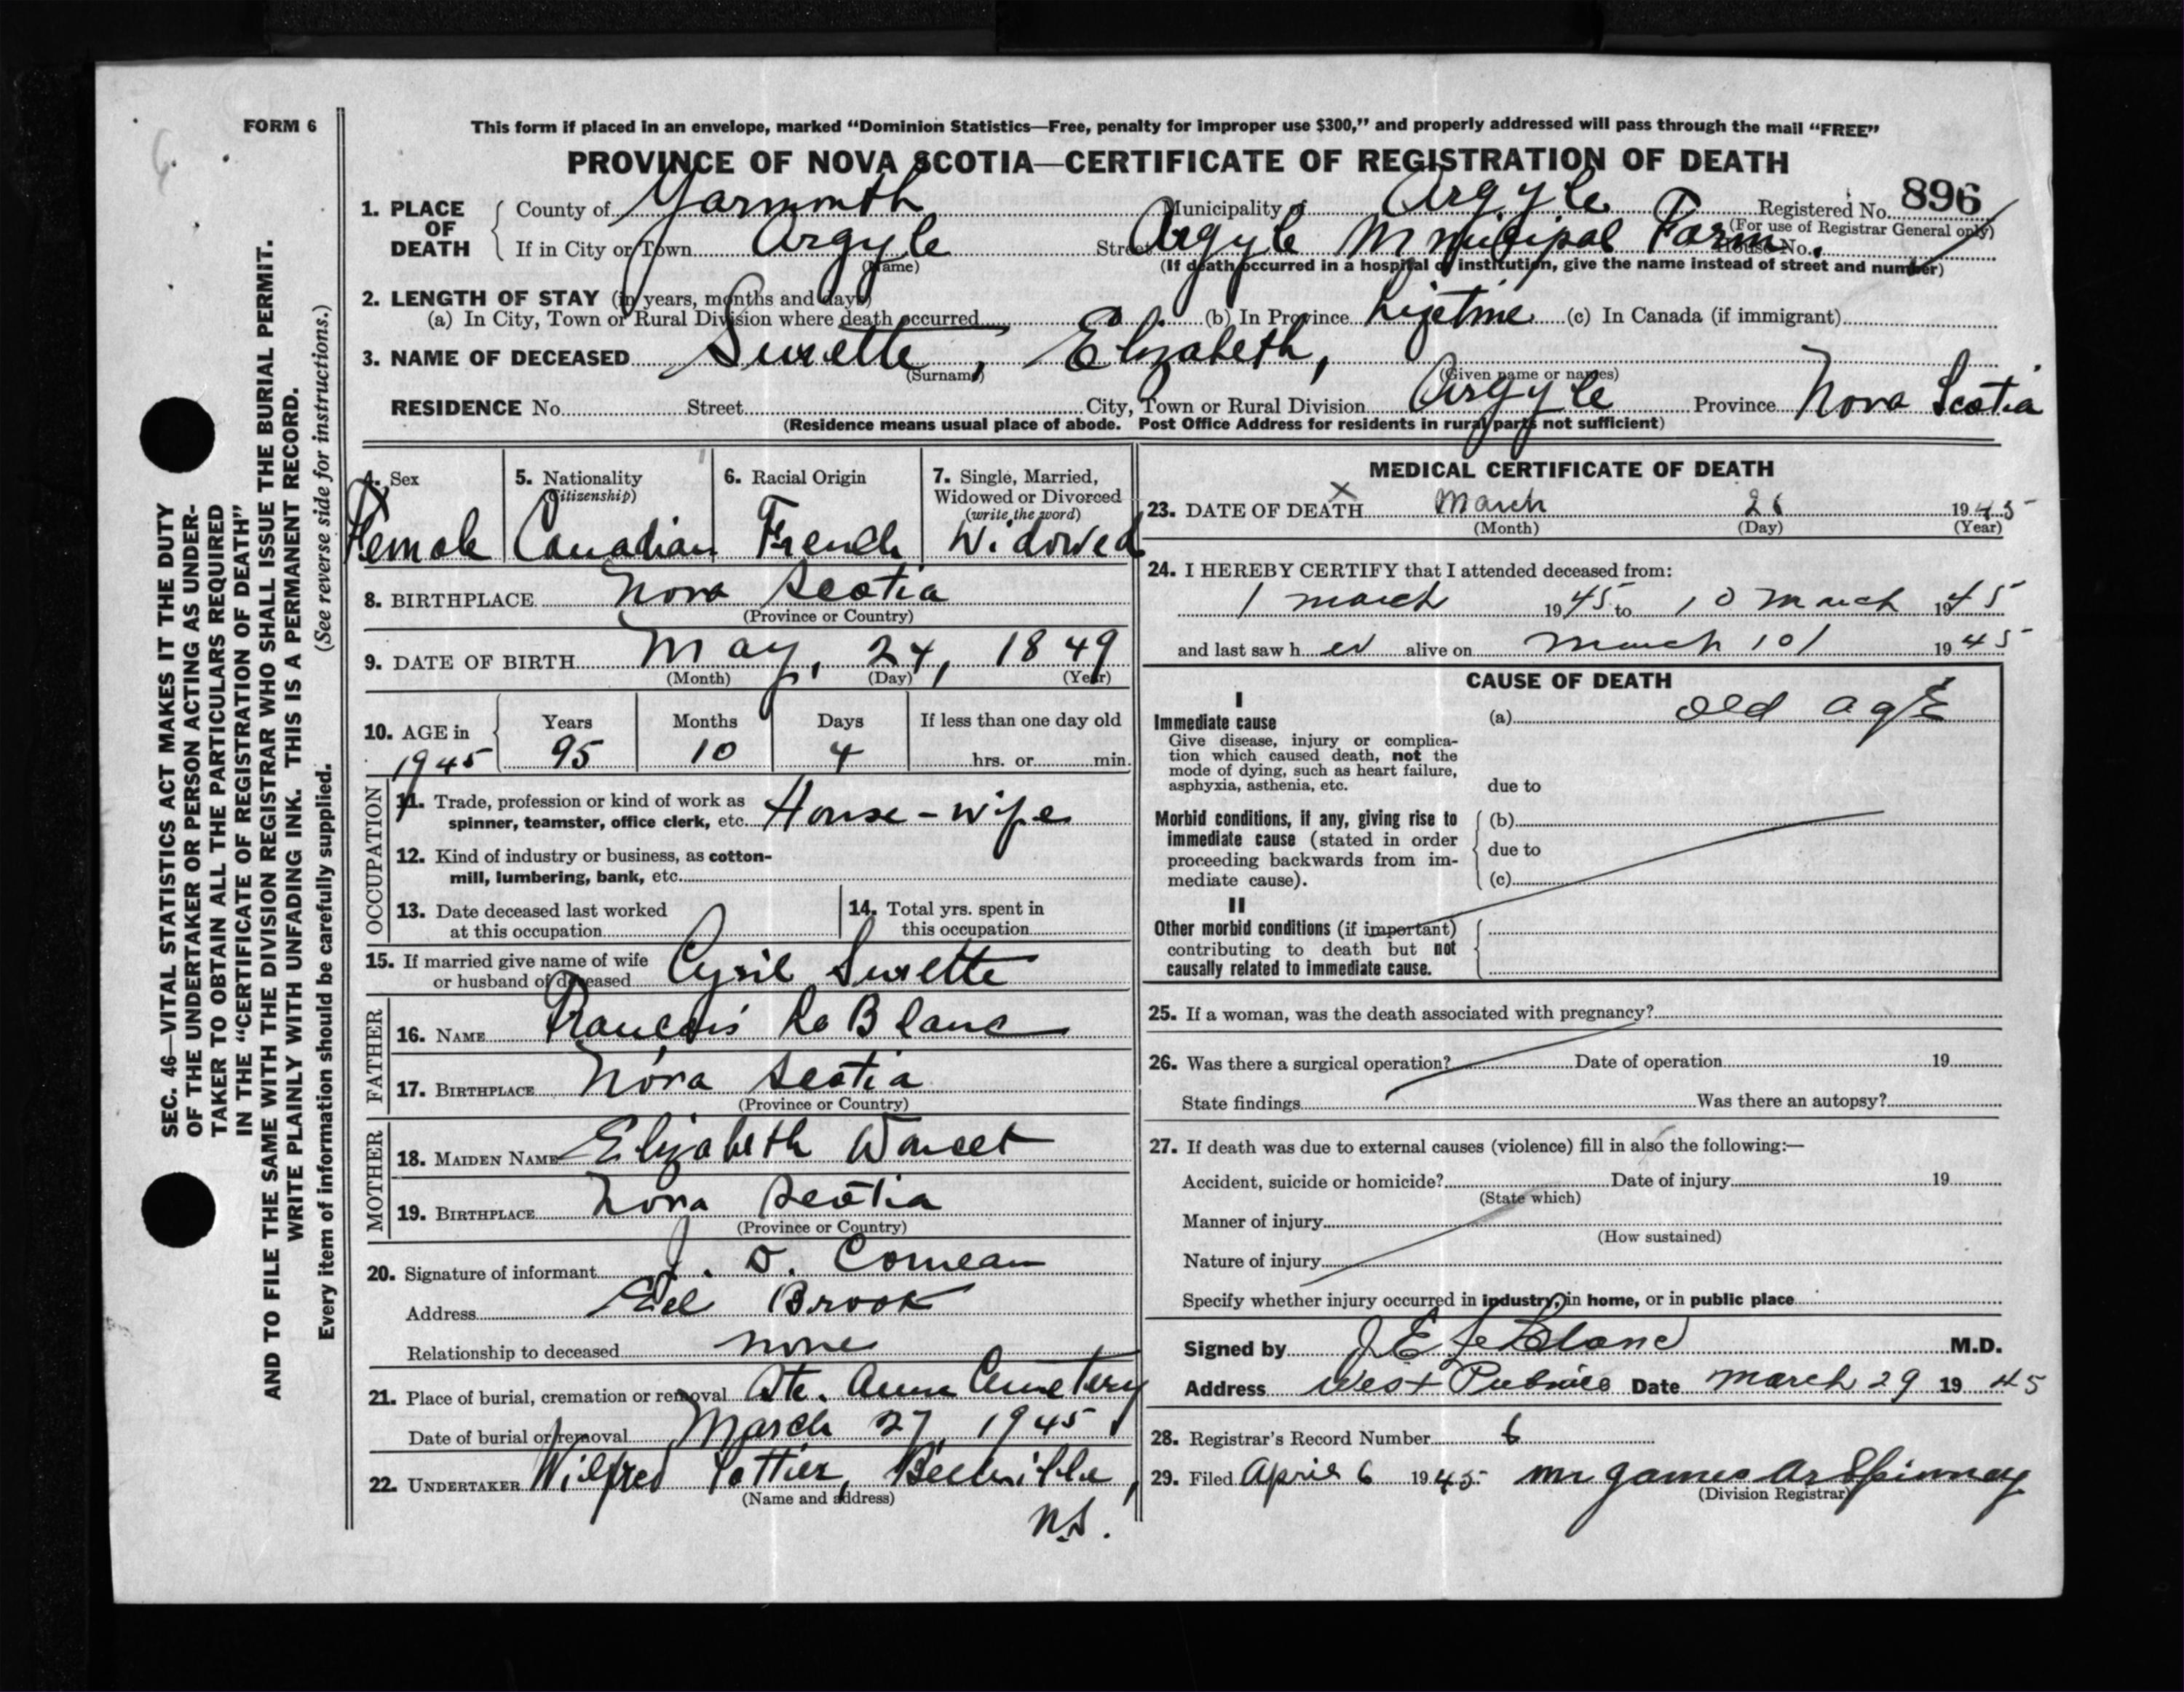 FORM 6
This form if placed in an envelope, marked “Dominion Statistics—Free, penalty for improper use $300,” and properly addressed will pass through the mail “FREE”
PROVINCE OF NOVA SCOTIA—CERTIFICATE OF REGISTRATION OF DEATH
1. PLACE OF DEATH { County of Yarmouth Municipality of Argyle Registered No. 896
(For use of Registrar General only)
If in City or Town Argyle Street Argyle Municipal Farm. House No.
(Name) (If death occurred in a hospital or institution, give the name instead of street and number)
2. LENGTH OF STAY (in years, months and days)
(a) In City, Town or Rural Division where death occurred (b) In Province Lifetime (c) In Canada (if immigrant)
3. NAME OF DECEASED Surette, Elizabeth,
(Surname) (Given name or names)
RESIDENCE No. Street City, Town or Rural Division Argyle Province Nova Scotia
(Residence means usual place of abode. Post Office Address for residents in rural parts not sufficient)
4. Sex
Female
5. Nationality
(Citizenship)
Canadian
6. Racial Origin
French
7. Single, Married,
Widowed or Divorced
(write the word)
Widowed
8. BIRTHPLACE Nova Scotia
(Province or Country)
9. DATE OF BIRTH May, 24, 1849
(Month) (Day) (Year)
10. AGE in 1945 { Years 95 Months 10 Days 4 If less than one day old
hrs. or min.
OCCUPATION
11. Trade, profession or kind of work as
spinner, teamster, office clerk, etc. House-wife
12. Kind of industry or business, as cotton-
mill, lumbering, bank, etc.
13. Date deceased last worked
at this occupation
14. Total yrs. spent in
this occupation
15. If married give name of wife
or husband of deceased Cyril Surette
FATHER
16. NAME Francois Le Blanc
17. BIRTHPLACE Nova Scotia
(Province or Country)
MOTHER
18. MAIDEN NAME Elizabeth
19. BIRTHPLACE Nova Scotia
(Province or Country)
20. Signature of informant J. D. Comeau
Address Eel Brook
Relationship to deceased none
21. Place of burial, cremation or removal Ste. Anne Cemetery
Date of burial or removal March 27, 1945
22. UNDERTAKER Wilfred Pottier, Belleville,
(Name and address)
N.S.
MEDICAL CERTIFICATE OF DEATH
23. DATE OF DEATH X March 26 1945
(Month) (Day) (Year)
24. I HEREBY CERTIFY that I attended deceased from:
1 March 1945 to 10 March 1945
and last saw her alive on March 10/ 1945
CAUSE OF DEATH
I
Immediate cause (a) old age
Give disease, injury or complica-
tion which caused death, not the
mode of dying, such as heart failure,
asphyxia, asthenia, etc. due to
Morbid conditions, if any, giving rise to (b)
immediate cause (stated in order
proceeding backwards from im- due to
mediate cause). (c)
II
Other morbid conditions (if important)
contributing to death but not
causally related to immediate cause.
25. If a woman, was the death associated with pregnancy?
26. Was there a surgical operation? Date of operation 19
State findings Was there an autopsy?
27. If death was due to external causes (violence) fill in also the following:—
Accident, suicide or homicide? Date of injury 19
(State which)
Manner of injury
(How sustained)
Nature of injury
Specify whether injury occurred in industry, in home, or in public place
Signed by J E LeBlanc M.D.
Address West Pubnico Date March 29 1945
28. Registrar's Record Number 6
29. Filed April 6 1945 Mr James Ar Spinney
(Division Registrar)
SEC. 46—VITAL STATISTICS ACT MAKES IT THE DUTY
OF THE UNDERTAKER OR PERSON ACTING AS UNDER-
TAKER TO OBTAIN ALL THE PARTICULARS REQUIRED
IN THE “CERTIFICATE OF REGISTRATION OF DEATH”
AND TO FILE THE SAME WITH THE DIVISION REGISTRAR WHO SHALL ISSUE THE BURIAL PERMIT.
WRITE PLAINLY WITH UNFADING INK. THIS IS A PERMANENT RECORD.
Every item of information should be carefully supplied. (See reverse side for instructions.)